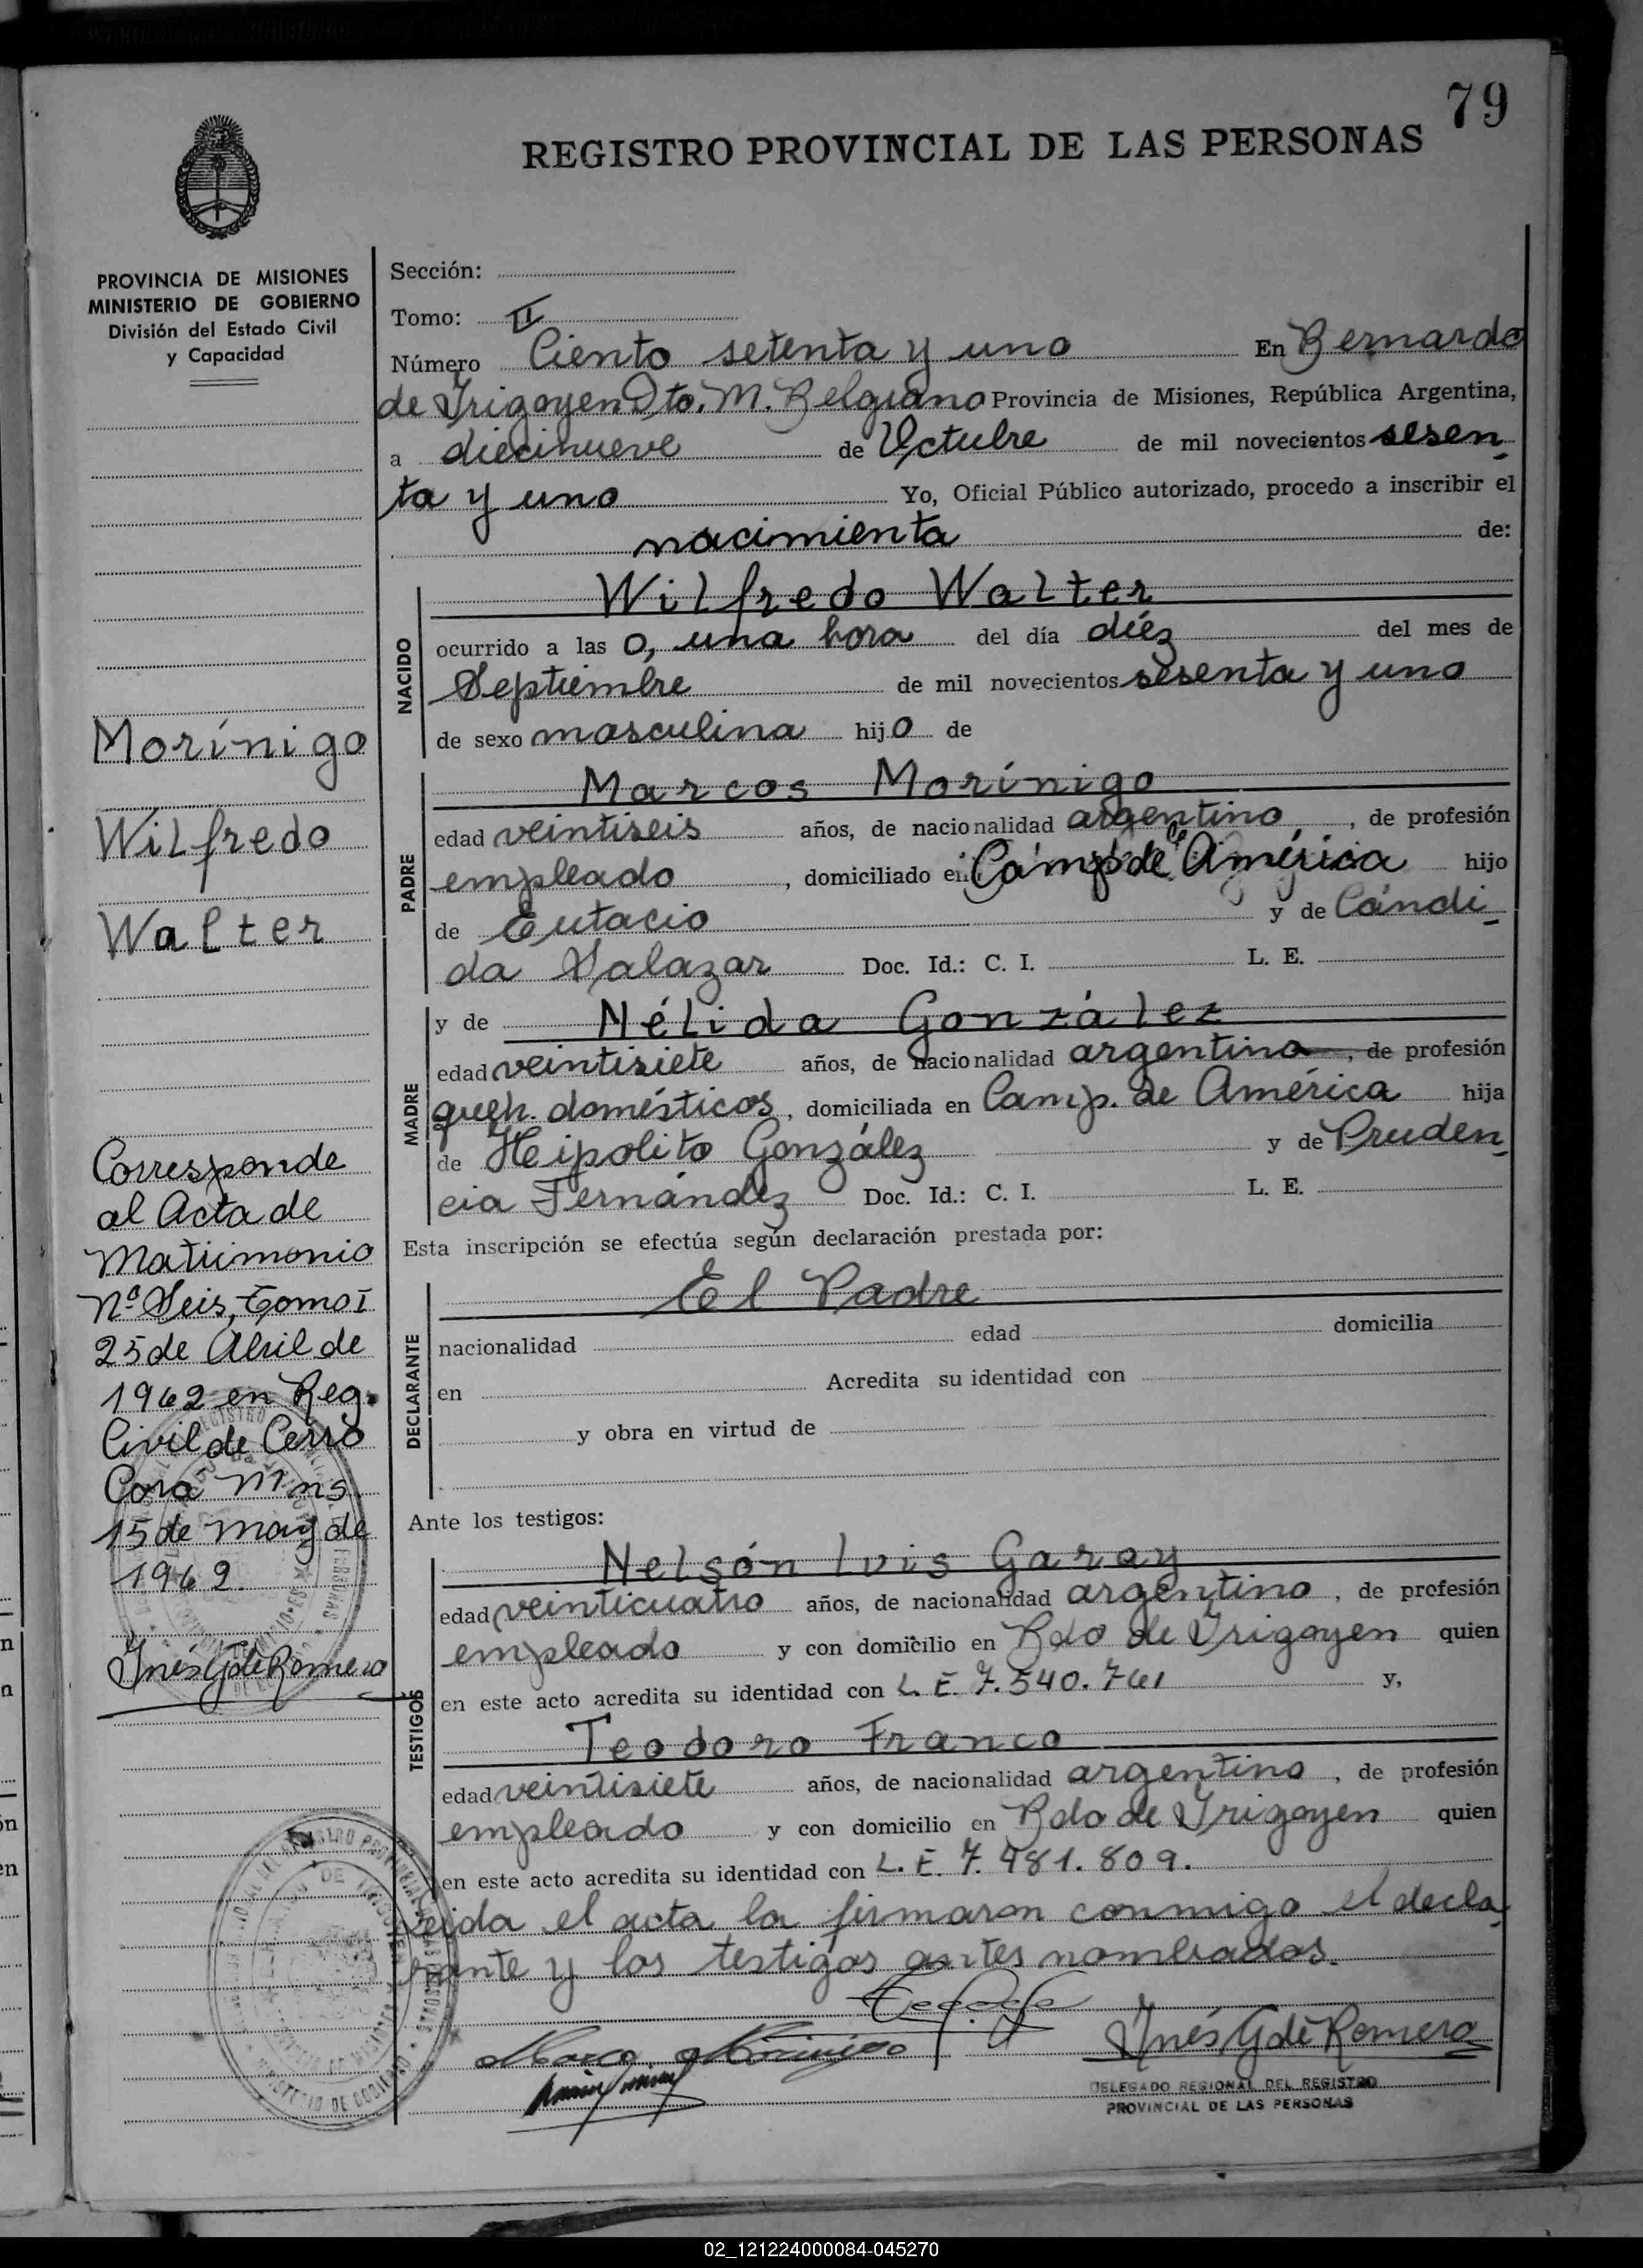 79
REGISTRO PROVINCIAL DE LAS PERSONAS
PROVINCIA DE MISIONES
MINISTERIO DE GOBIERNO
División del Estado Civil
y Capacidad
Morínigo
Wilfredo
Walter
Corresponde
al Acta de
Matrimonio
Nº Seis, Tomo I
25 de Abril de
1962 en Reg.
Civil de Cerro
Corá Mns
15 de May de
1962.
Inés G de Romero
Sección:
Tomo: II
Número Ciento setenta y uno En Bernardo
de Irigoyen Dto. M. Belgrano Provincia de Misiones, República Argentina,
a diecinueve de Octubre de mil novecientos sesen
ta y uno Yo, Oficial Público autorizado, procedo a inscribir el
nacimiento de:
NACIDO
Wilfredo Walter
ocurrido a las 0, una hora del día diéz del mes de
Septiembre de mil novecientos sesenta y uno
de sexo masculino hijo de
PADRE
Marcos Morínigo
edad veintiseis años, de nacionalidad argentino, de profesión
empleado, domiciliado en Camp. de América hijo
de Eutacio y de Cándi
da Salazar Doc. Id.: C. I. L. E.
MADRE
y de Nélida González
edad veintisiete años, de nacionalidad argentina, de profesión
queh. domésticos, domiciliada en Camp. de América hija
de Heipolito González y de Pruden
cia Fernández Doc. Id.: C. I. L. E.
Esta inscripción se efectúa según declaración prestada por:
DECLARANTE
El Padre
nacionalidad edad domicilia
en Acredita su identidad con
y obra en virtud de
Ante los testigos:
TESTIGOS
Nelsón Luis Garay
edad veinticuatro años, de nacionalidad argentino, de profesión
empleado y con domicilio en Bdo de Irigoyen quien
en este acto acredita su identidad con L. E. 7.540.761 y,
Teodoro Franco
edad veintisiete años, de nacionalidad argentino, de profesión
empleado y con domicilio en Bdo de Irigoyen quien
en este acto acredita su identidad con L. E. 7.481.809.
Leida el acta la firmaron conmigo el decla
rante y los testigos antes nombrados.
Marcos Morinigo
Inés G de Romero
DELEGADO REGIONAL DEL REGISTRO
PROVINCIAL DE LAS PERSONAS
02_121224000084-045270